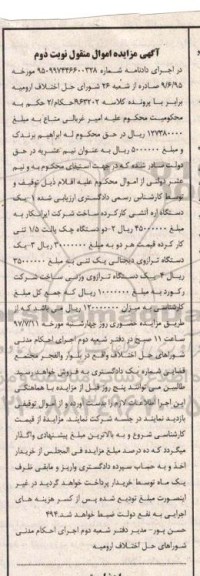 آگهی مزایده اموال منقول نوبت دوم
در اجرای دادنامه شماره ۹۵۰۹۹۷۴۴۶۶۰۰۳۲۸ مورخه
۹/۶/۹۵ صادره از شعبه ۲۶ شورای حل اختلاف ارومیه
برابر با پرونده کلاسه ۹۶۳۲۰۲/احکام/۲ حکم به
محکومیت محکوم علیه امیر عربالی متاع به مبلغ
۱۲۷۳۸۰۰۰۰ ریال در حق محکوم له ابراهیم برندک
و مبلغ ۵۰۰۰۰۰۰ ریال به عنوان نیم عشریه در حق
دولت صادر شده که در جهت استیفای محکوم به و نیم
عشر دولتی از اموال محکوم علیه اقلام ذیل توقیف و
توسط کارشناس رسمی دادگستری ارزیابی شده ۱-یک
دستگاه اره آتشی کارکرده ساخت شرکت ایرانکار به
مبلغ ۴۵۰۰۰۰۰۰ ریال ۲-دو دستگاه چک بالت ۱/۵ تنی
کارکرده قیمت هر دو به مبلغ ۳۰۰۰۰۰۰۰ ریال ۳-یک
دستگاه ترازوی دیجتالی یک تنی به مبلغ ۳۵۰۰۰۰۰۰
ریال ۴-یک دستگاه ترازوی وزنی ساخت شرکت
رکورد به مبلغ ۱۰۰۰۰۰۰۰ ریال که جمع کل مبلغ
کارشناسی به میزان ۱۲۰۰۰۰۰۰۰ ریال می باشد که از
طریق مزایده حضوری روز چهارشنبه مورخه ۹۷/۷/۱۱
ساعت ۱۱ صبح در دفتر شعبه دوم اجرای احکام مدنی
شوراهای حل اختلاف واقع در بلوار والفجر مجتمع
قضایی شماره یک دادگستری به فروش خواهد رسید
طالبین می توانند پنج روز قبل از مزایده با هماهنگی
این اجرا اطلاعات لازم را بدست آورده و از اموال توقیفی
بازدید نمایند در جلسه شرکت نمایند. مزایده از قیمت
کارشناسی شروع و به بالاترین مبلغ پیشنهادی واگذار
میگردد که ده درصد مبلغ مزایده فی المجلس از خریدار
اخذ و به حساب سپرده دادگستری واریز و مابقی ظرف
یک ماه توسط خریدار پرداخت خواهد گردید در غیر
اینصورت مبلغ تودیع شده پس از کسر هزینه های
اجرایی به نفع دولت ضبط خواهد شد.۴۹۴
حسن پور - مدیر دفتر شعبه دوم اجرای احکام مدنی
شوراهای حل اختلاف ارومیه